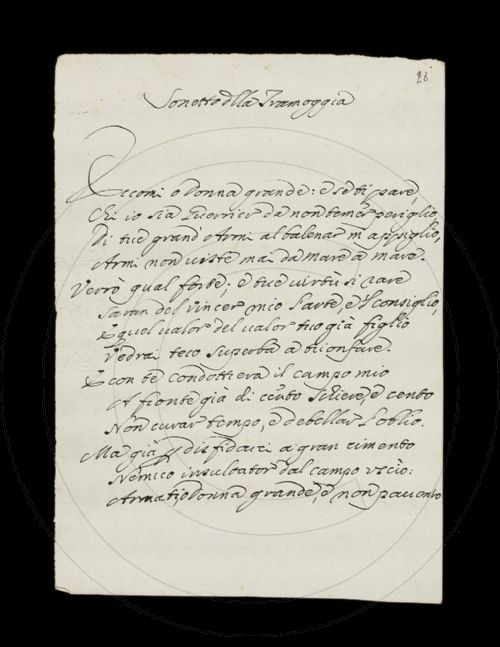 28
Sonetto della Tramoggia
Eccomi o Donna grande: e se ti pare,
Ch'io sia Guerrier da non temer periglio,
Di tue grand'Armi al balenar m'appiglio,
Armi non viste mai da mare a mare.
Verrò qual forte; e tue virtù sì rare
Saran del vincer mio l'arte, e 'l consiglio,
E quel valor del valor tuo già figlio
Vedrai teco superba a trionfare.
E con te condottiera il campo mio
A fronte già di cento schiere, e cento
Non curar tempo, e debellar l'oblio.
Ma già disfidarci a gran cimento
Nemico insultator dal campo uscìo:
Armati, o Donna grande, e non pavento